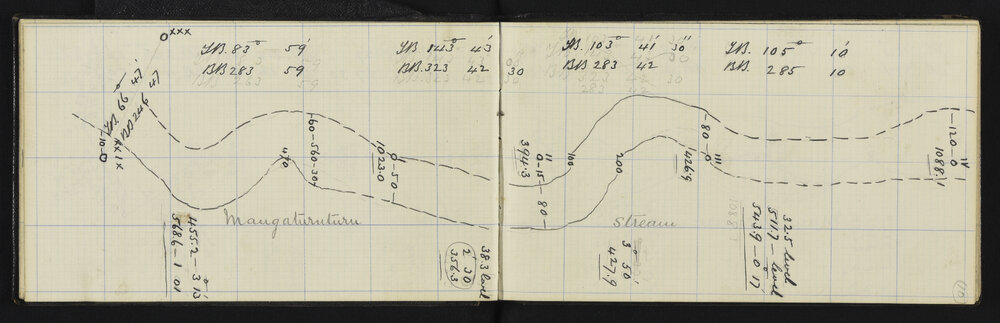 xxx
FB. 83° 59'
BB 283 59
FB. 143° 43'
BB. 323 42 30
FB. 103° 41' 30"
BB 283 42
FB. 105° 10'
BB. 285 10
FB 66 47'
BB 246 47
xxix
470
-60-560-30
1023.0
0-50-
11
0-15-80-
394.3
100
200
4269
-80-0
111
-120-0
1V
1088.1
Mangaturuturu
Stream
455.2-3° 13'
5686-1 01
38.3 level
2° 30
356.3
3° 50'
427.9
32.5 level
511.7-level
543.9-0° 17'